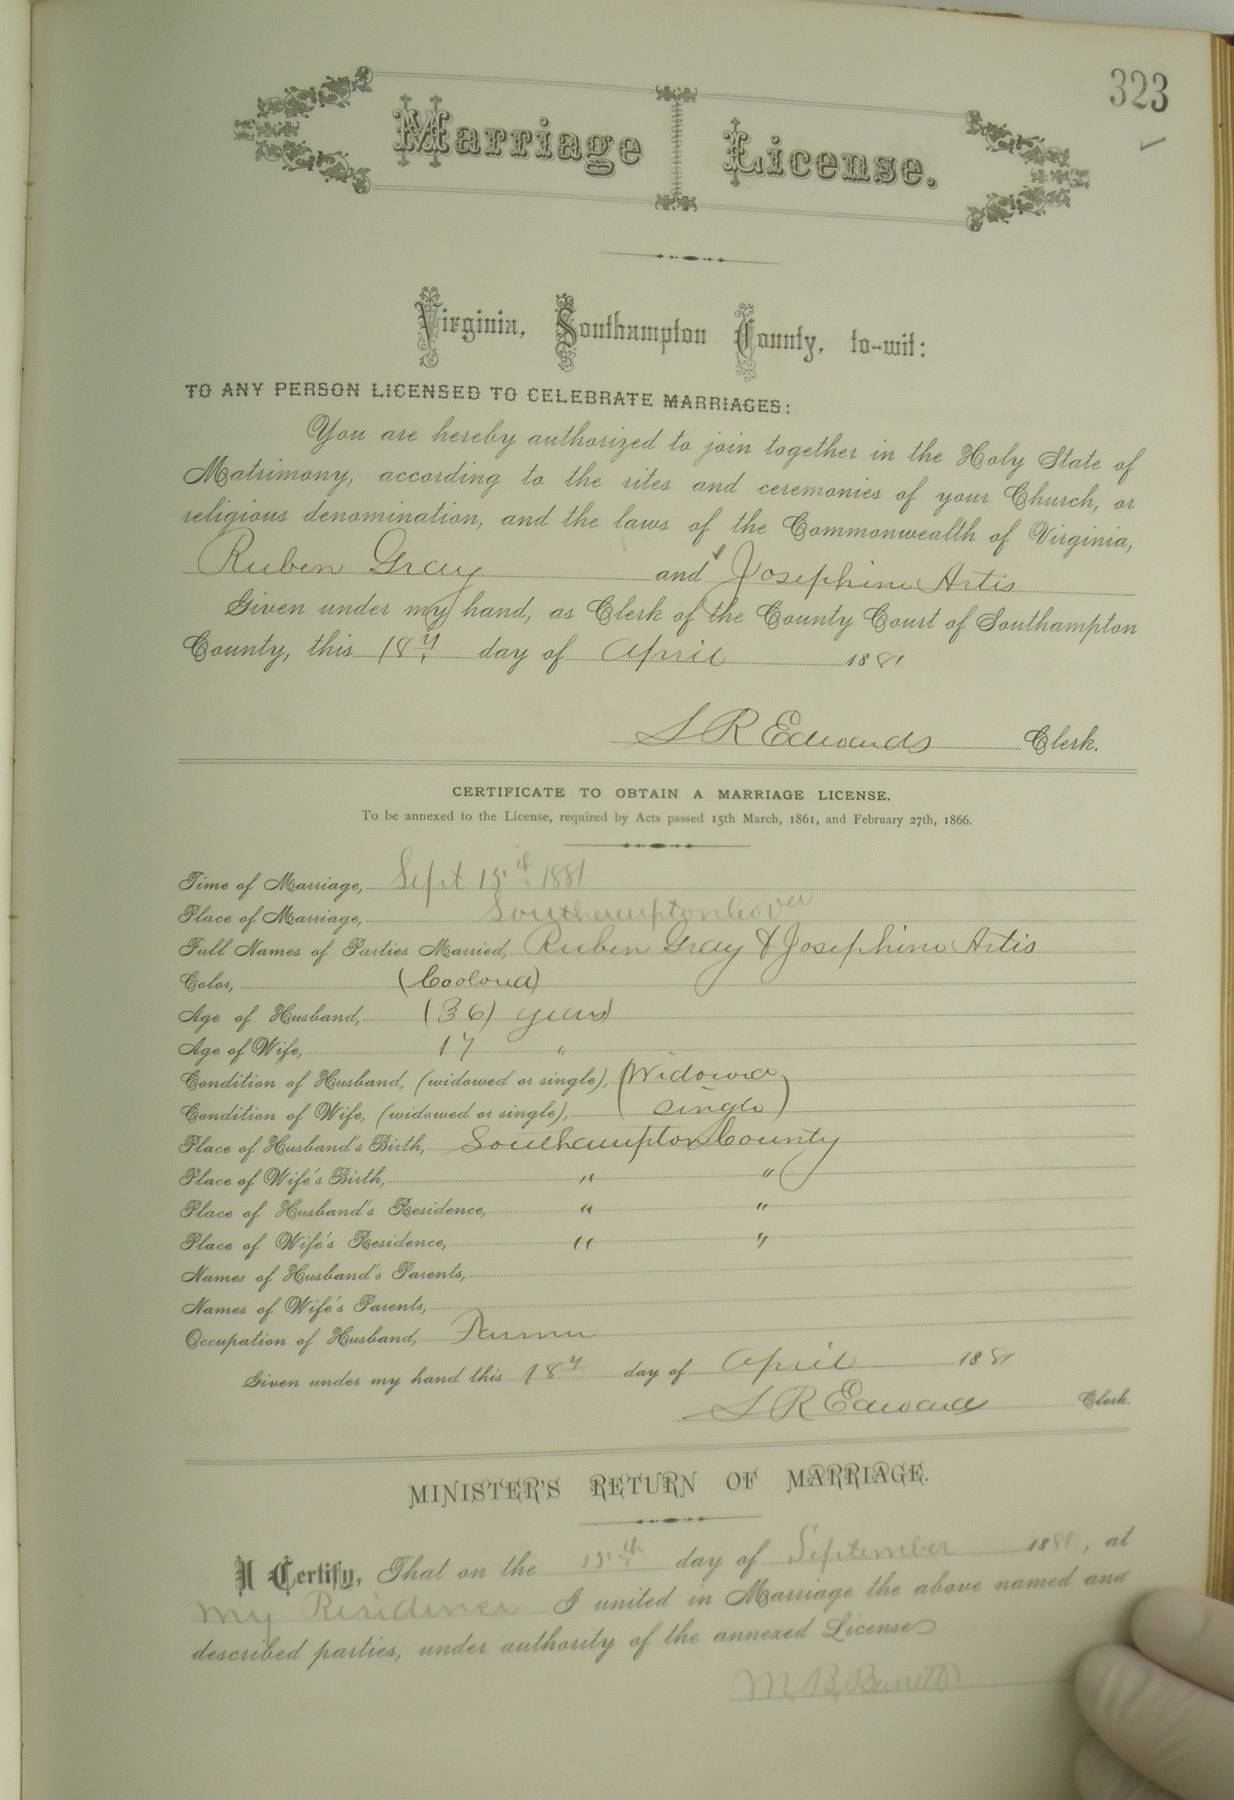 323
Marriage License.
Virginia, Southampton County, to-wit:
TO ANY PERSON LICENSED TO CELEBRATE MARRIAGES:
You are hereby authorized to join together in the Holy State of
Matrimony, according to the rites and ceremonies of your Church, or
religious denomination, and the laws of the Commonwealth of Virginia,
Ruben Gray and Josephine Artis
Given under my hand, as Clerk of the County Court of Southampton
County, this 18th day of April 1881
L R Edwards Clerk.
CERTIFICATE TO OBTAIN A MARRIAGE LICENSE.
To be annexed to the License, required by Acts passed 15th March, 1861, and February 27th, 1866.
Time of Marriage, Sept 15th 1881
Place of Marriage, Southampton Co Va
Full Names of Parties Married, Ruben Gray & Josephine Artis
Color, (Coolored)
Age of Husband, (36) years
Age of Wife, 17 "
Condition of Husband, (widowed or single), (Widowed
Condition of Wife, (widowed or single), Single)
Place of Husband's Birth, Southampton County
Place of Wife's Birth, " "
Place of Husband's Residence, " "
Place of Wife's Residence, " "
Names of Husband's Parents,
Names of Wife's Parents,
Occupation of Husband, Farmer
Given under my hand this 18th day of April 1881
L R Edwards Clerk.
MINISTER'S RETURN OF MARRIAGE.
I Certify, That on the 15th day of September 1881, at
my Residence I united in Marriage the above named and
described parties, under authority of the annexed License
M. B. Barrett